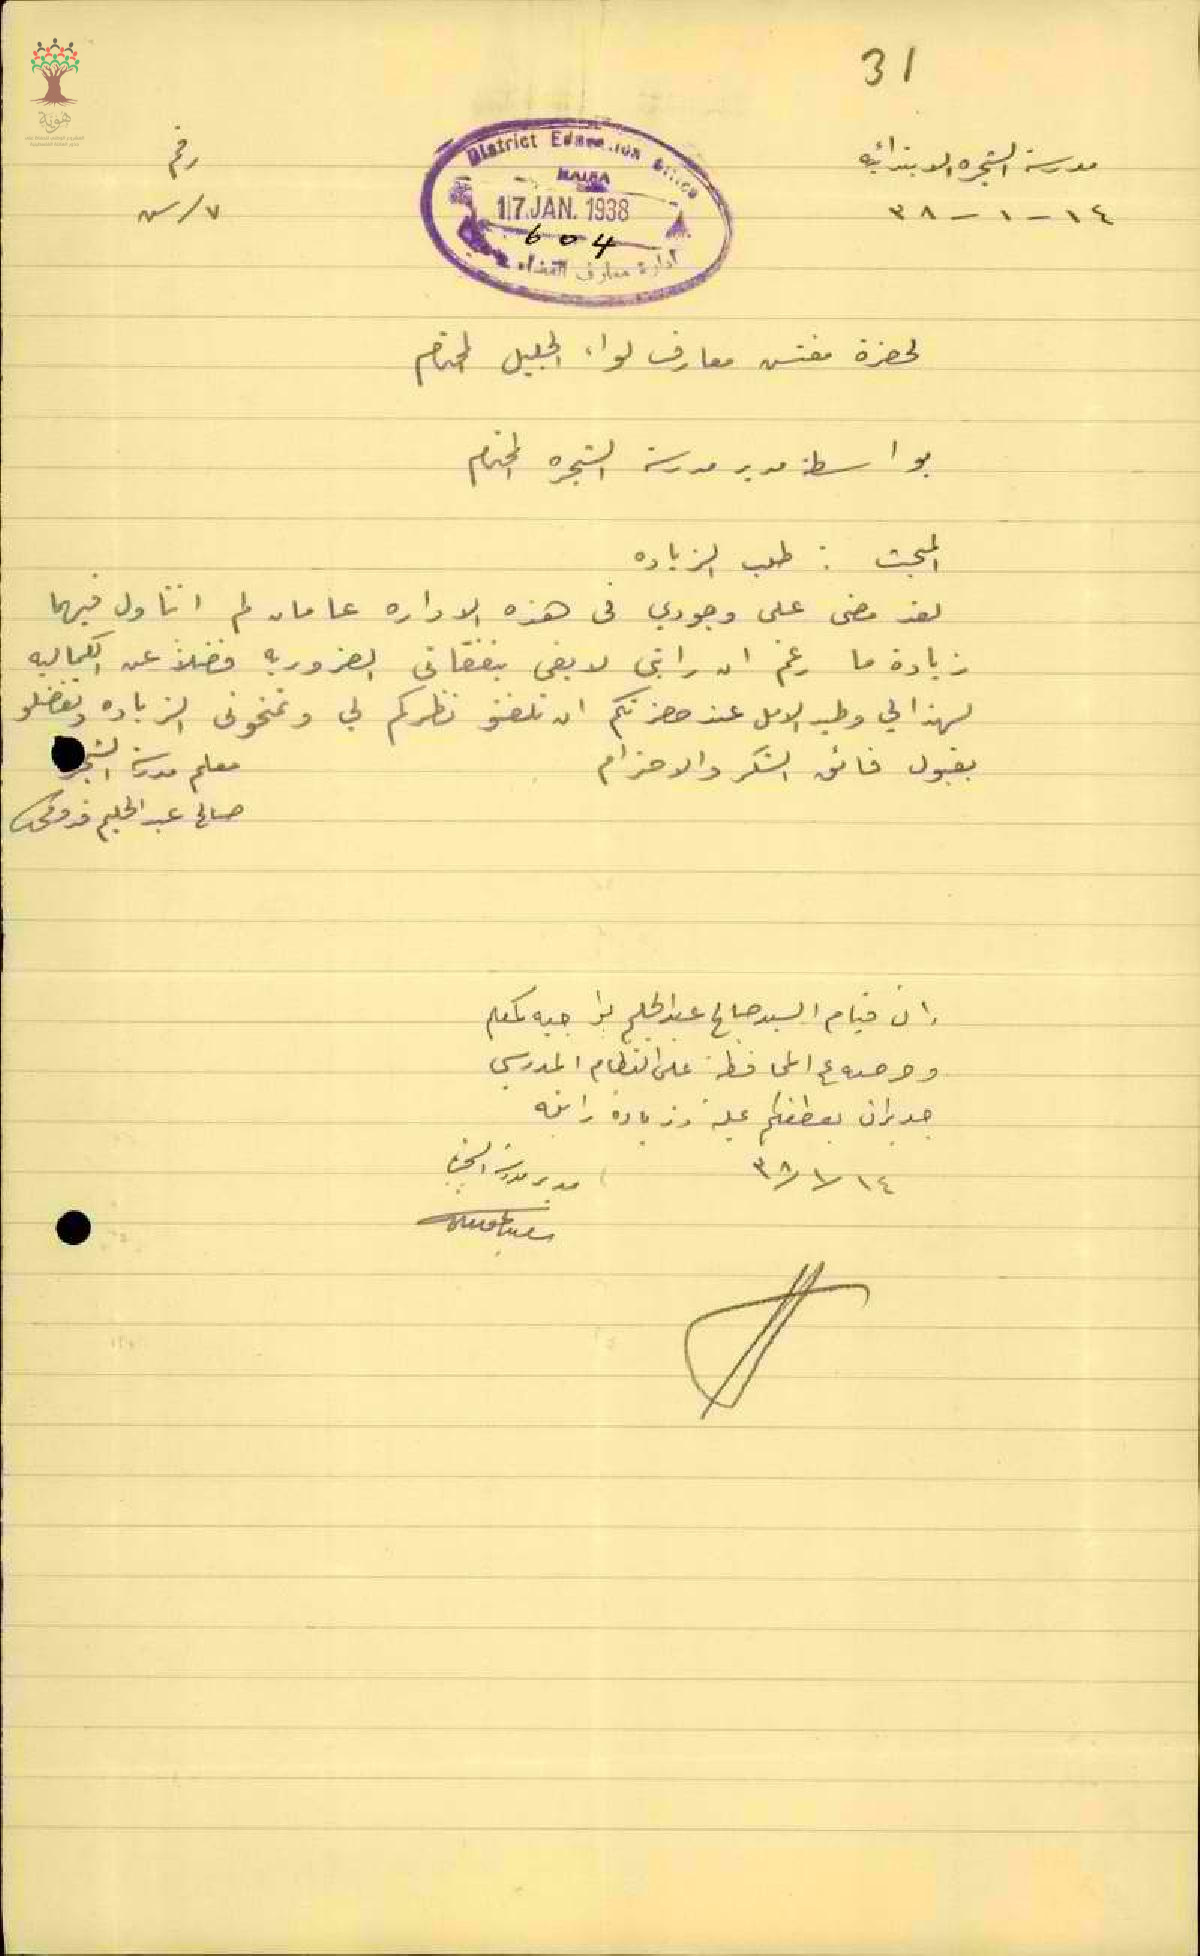 31
مدرسة الشجره الابتدائيه
رقم
١٤ - ١ - ٣٨
٧/س
District Education Office
HAIFA
17 JAN. 1938
604
ادارة معارف القضاء
لحضرة مفتش معارف لواء الجليل المحترم
بواسطة مدير مدرسة الشجره المحترم
المبحث : طلب الزياده
لقد مضى على وجودي في هذه الاداره عامان لم اتناول فيهما
زيادة ما رغم ان راتبي لا يفي بنفقاتي الضروريه فضلاً عن الكماليه
لهذا لي وطيد الامل عند حضرتكم ان تلفتو نظركم لي وتمنحوني الزياده وتفضلو
بقبول فائق الشكر والاحترام
معلم مدرسة الشجره
صالح عبد الحليم
ان قيام السيد صالح عبد الحليم بواجبه كمعلم
وحرصه على المحافظة على النظام المدرسي
جديران بعطفكم عليه وزيادة راتبه
١٤/١/٣٨
مدير مدرسة الشجره
هوية